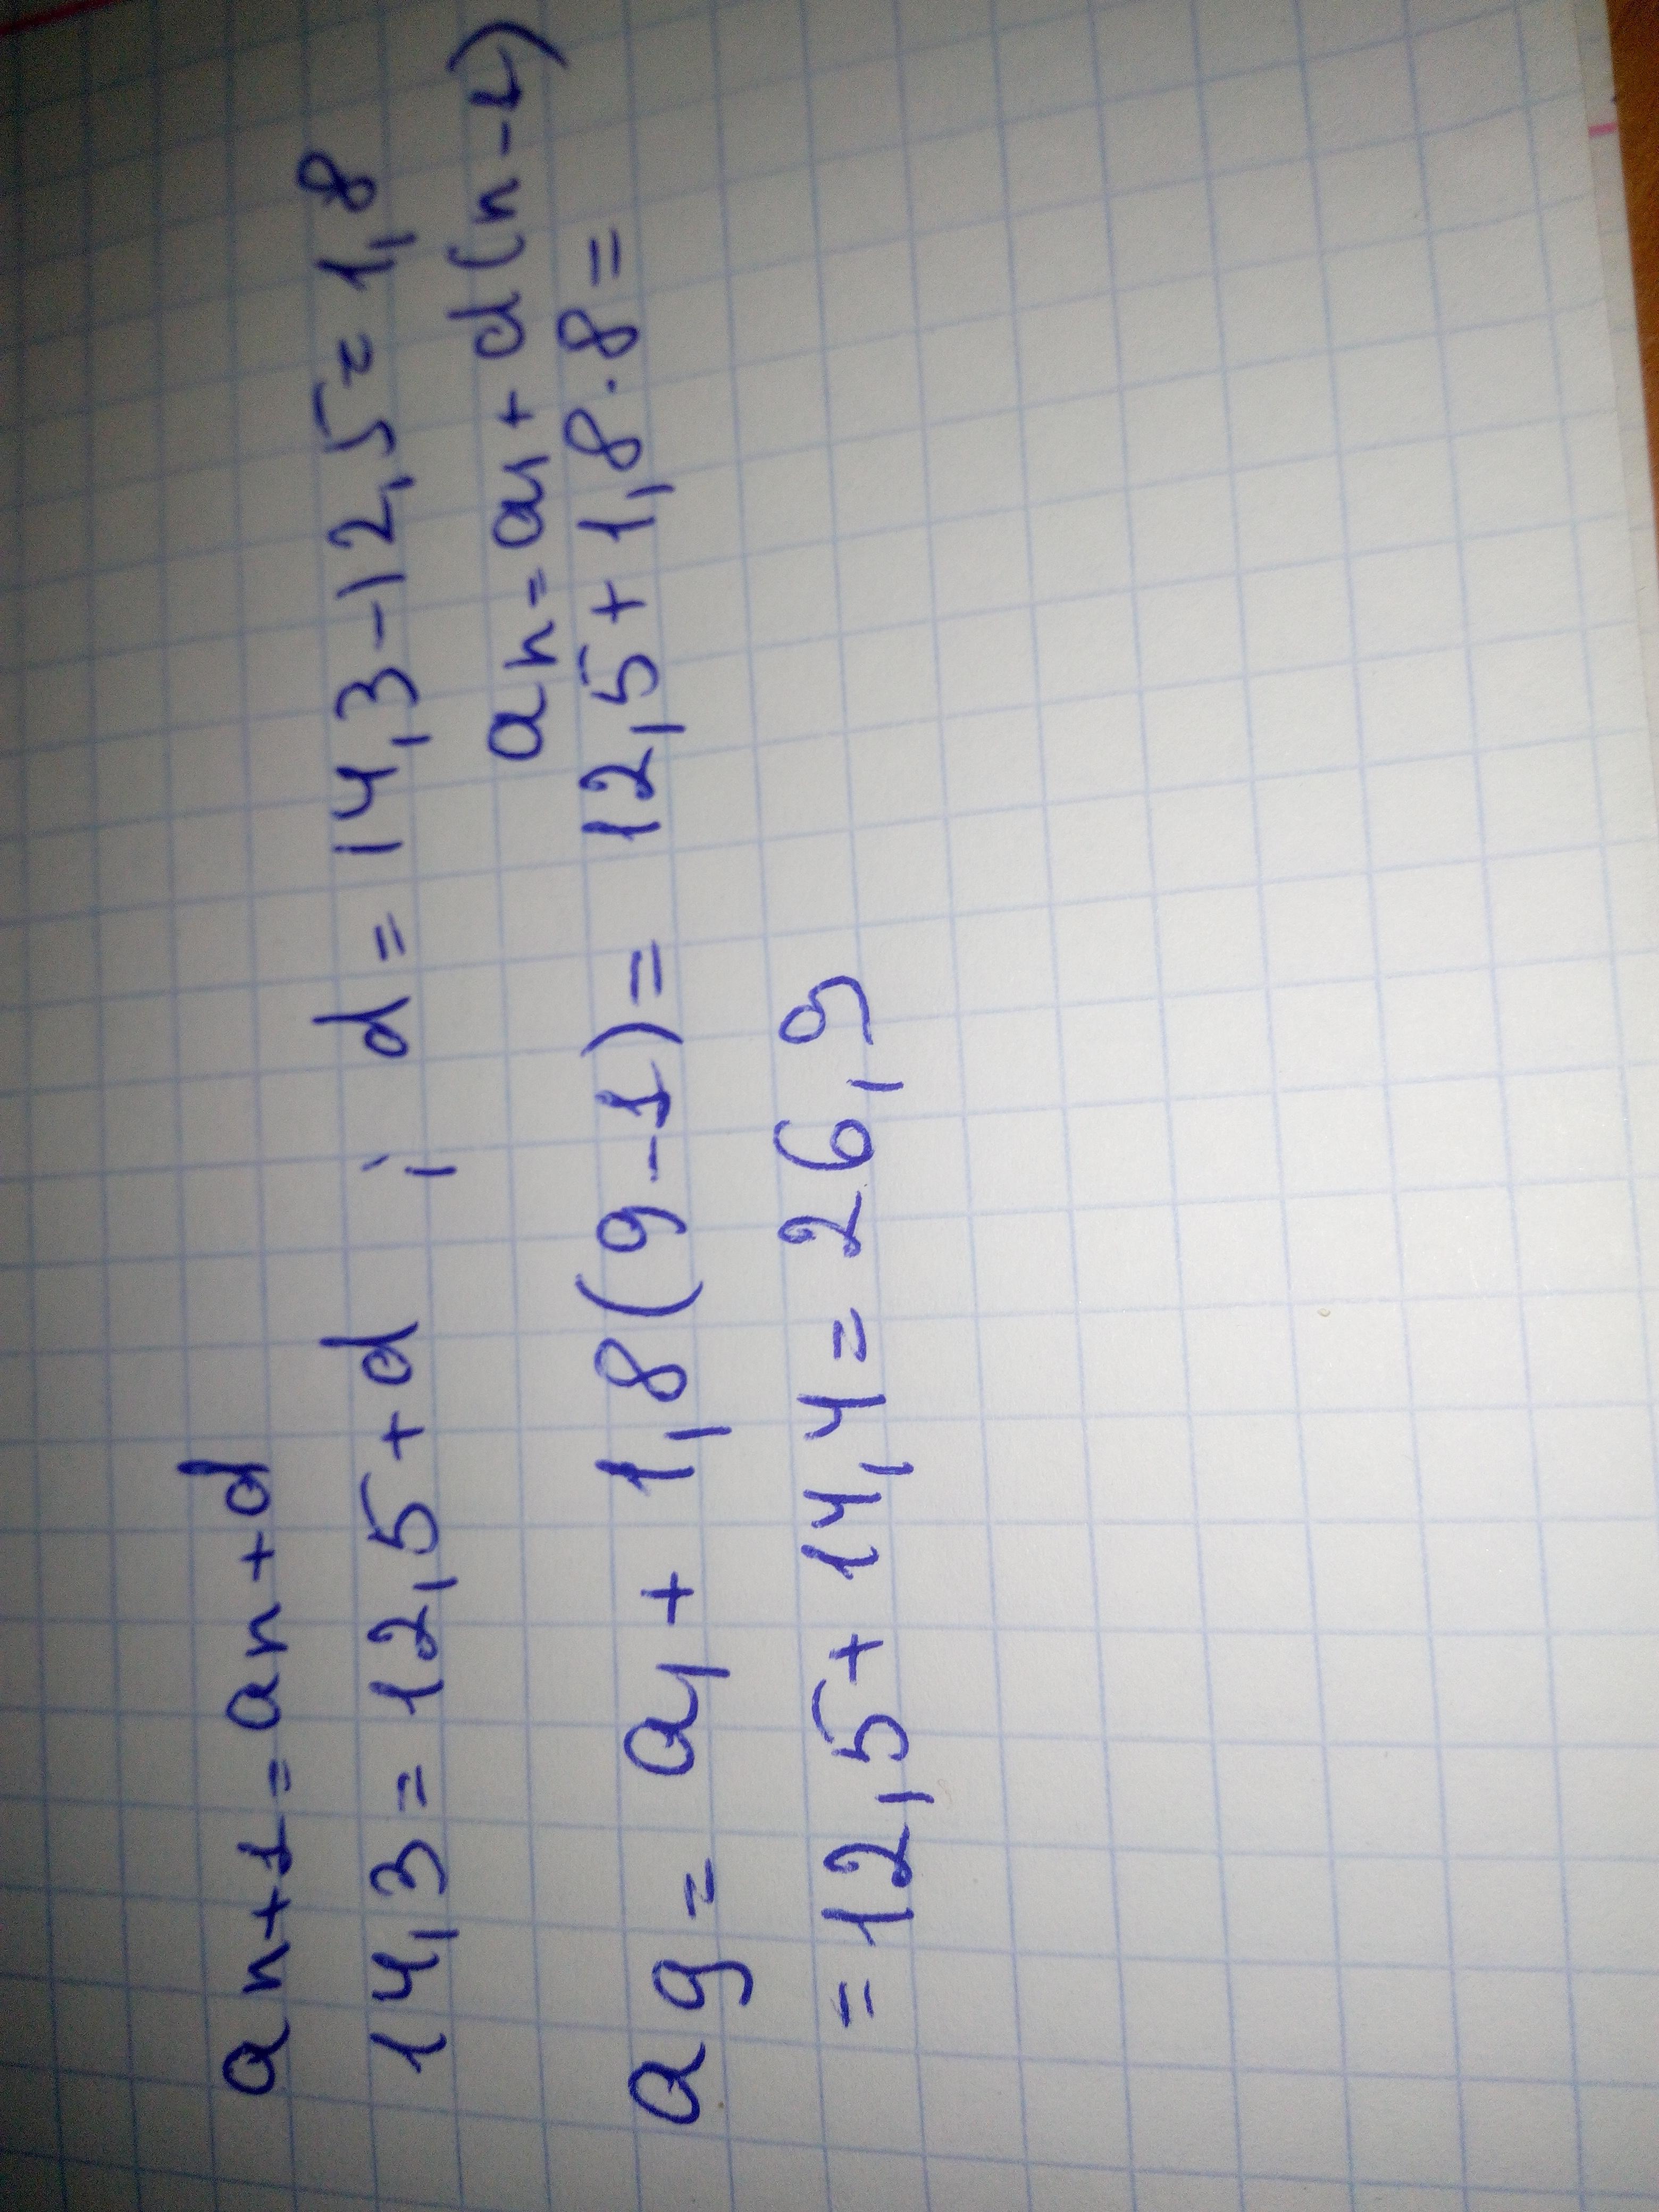 an+1=an+d
14,3=12,5+d ; d=14,3-12,5=1,8
an=a1+d(n-1)
a9= a1+ 1,8(9-1)= 12,5+1,8·8=
=12,5+14,4=26,9